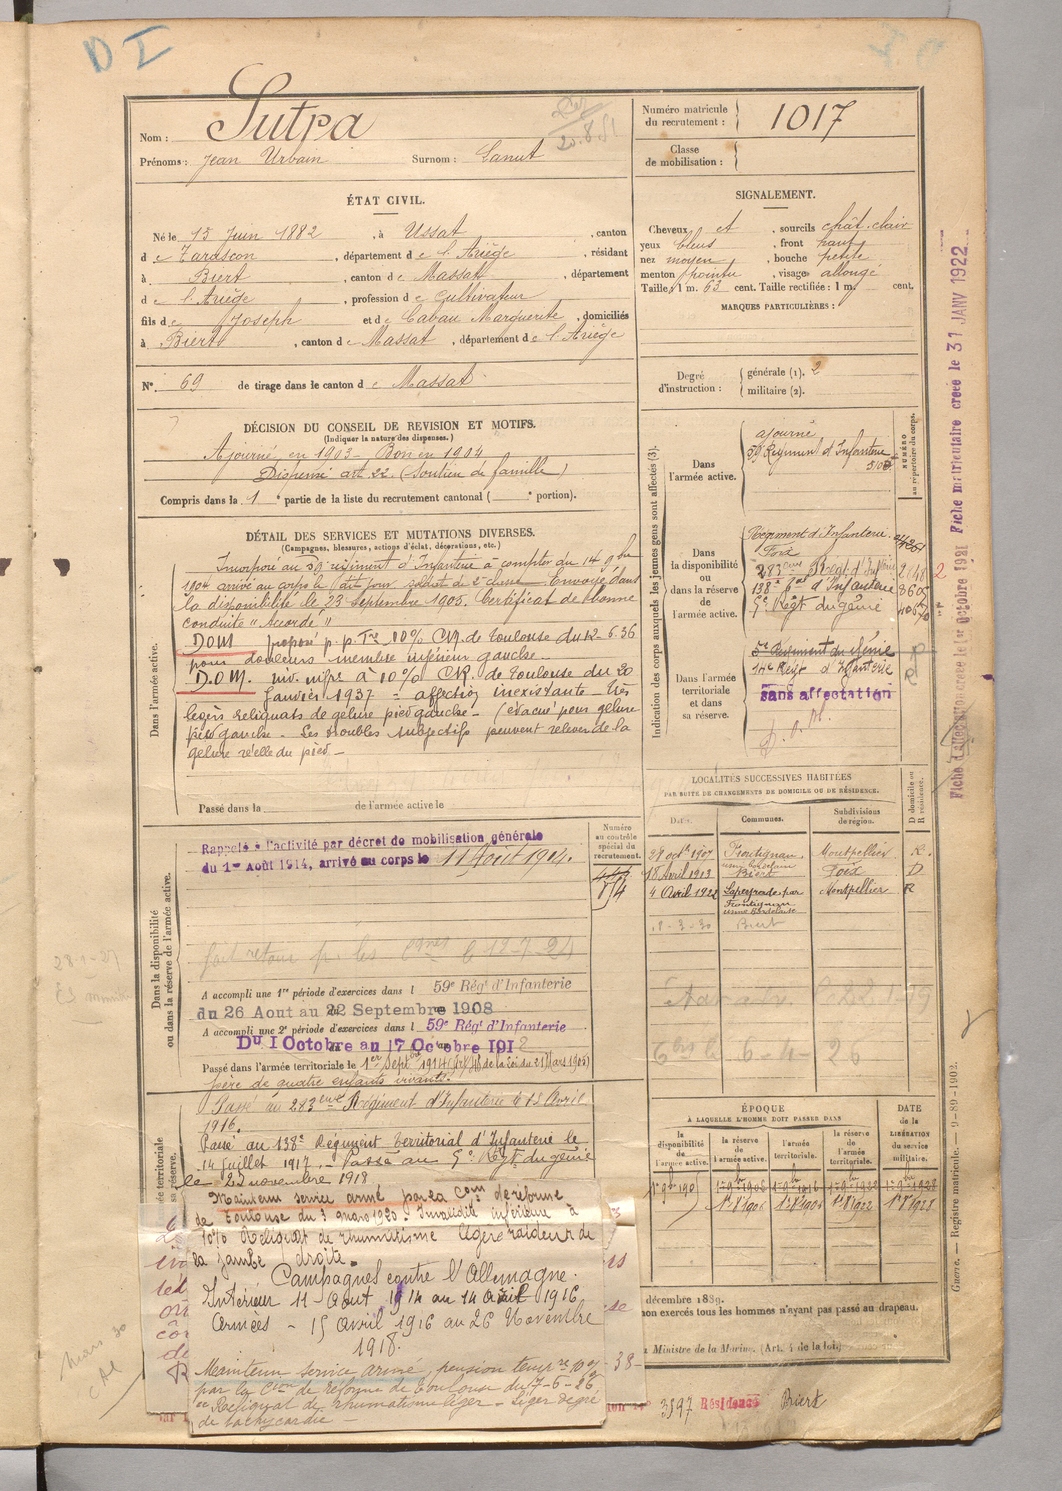 D I
Nom : Sutra
Prénoms : Jean Urbain Surnom : Canut
20.8.51
Numéro matricule
du recrutement : 1017
Classe
de mobilisation :
ÉTAT CIVIL.
Né le 15 Juin 1882, à Ussat, canton
de Tarascon, département de l'Ariège, résidant
à Biert, canton de Massat, département
de l'Ariège, profession de Cultivateur
fils de Joseph et de Cabau Marguerite, domiciliés
à Biert, canton de Massat, département de l'Ariège
N° 69 de tirage dans le canton de Massat
SIGNALEMENT.
Cheveux et, sourcils chât. clair
yeux bleus, front haut
nez moyen, bouche petite
menton pointu, visage allongé
Taille : 1 m. 63 cent. Taille rectifiée : 1 m. cent.
MARQUES PARTICULIÈRES :
Degré
d'instruction :
générale (1). 2
militaire (2).
DÉCISION DU CONSEIL DE REVISION ET MOTIFS.
(Indiquer la nature des dispenses.)
Ajourné en 1903 - Bon en 1904
Dispensé art. 22. (Soutien de famille)
Compris dans la 1e partie de la liste du recrutement cantonal ( e portion).
DÉTAIL DES SERVICES ET MUTATIONS DIVERSES.
(Campagnes, blessures, actions d'éclat, décorations, etc.)
Dans l'armée active.
Incorporé au 59e régiment d'Infanterie à compter du 14 9bre
1904 arrivé au corps le dit jour soldat de 2e classe. Envoyé dans
la disponibilité le 23 Septembre 1905. Certificat de bonne
conduite "Accordé"
DOM proposé p. p. Tre 10% CR. de Toulouse du 12-6-36
pour douleurs membre inférieur gauche
D.O.M. inv. infre à 10% CR. de Toulouse du 20
Janvier 1937 - affection inexistante - très
légers reliquats de gelure pied gauche - (évacué pour gelure
pied gauche - Les troubles subjectifs peuvent relever de la
gelure réelle du pied -
Passé dans la de l'armée active le
Indication des corps auxquels les jeunes gens sont affectés (3).
NUMÉRO
au répertoire du corps.
Dans
l'armée active.
ajourné
59e Régiment d'Infanterie
Dans
la disponibilité
ou
dans la réserve
de
l'armée active.
Régiment d'Infanterie
Foix
283eme Régt d'Infie
138e Rgt d'Infanterie
5e Régt du génie
Dans l'armée
territoriale
et dans
sa réserve.
5e Régiment du Génie
14e Régt d'Infanterie
sans affectation
D. O. M.
Fiche matriculaire créée le 31 JANV 1922
Fiche d'affectation créée le 1er octobre 1921
LOCALITÉS SUCCESSIVES HABITÉES
PAR SUITE DE CHANGEMENTS DE DOMICILE OU DE RÉSIDENCE.
Dates. Communes. Subdivisions
de région. D domicile ou
R résidence.
Frontignan Montpellier R.
18 Avril 1913 Biert Foix D
4 Avril 1922 Lapeyrade par Montpellier R
Frontignan
usine Bordelaise
18-3-30 Biert
6-4-26
Dans la disponibilité
ou dans la réserve de l'armée active.
Numéro
au contrôle
spécial du
recrutement.
Rappelé à l'activité par décret de mobilisation générale
du 1er Août 1914, arrivé au corps le 11 Août 1914.
A accompli une 1re période d'exercices dans l 59e Régt d'Infanterie
du 26 Aout au 22 Septembre 1908
A accompli une 2e période d'exercices dans l 59e Régt d'Infanterie
Du 1 Octobre au 17 Octobre 1912
Passé dans l'armée territoriale le 1er Septbre 1914 (Art. 48 de la loi du 21 Mars 1905)
père de quatre enfants vivants.
Passé au 283eme Régiment d'Infanterie le 15 Avril
1916.
Passé au 138e Régiment territorial d'Infanterie le
14 Juillet 1917. - Passé au 5e Régt du génie
le 22 novembre 1918
Maintenu service armé par la Com de réforme
de Toulouse du 3 mars 1920. Invalidité inférieure à
10% Reliquat de rhumatisme légère raideur de
la jambe droite.
Campagnes contre l'Allemagne.
Intérieur 11 Août 1914 au 14 Avril 1916
Armées - 15 Avril 1916 au 26 Novembre
1918.
Maintenu service armé, pension tempre 10%
par la Com de réforme de Toulouse du 7-6-26
Reliquat de rhumatisme léger - Léger degré
de tachycardie -
ÉPOQUE
À LAQUELLE L'HOMME DOIT PASSER DANS
la
disponibilité
de
l'armée active.
la réserve
de
l'armée active.
l'armée
territoriale.
la réserve
de
l'armée
territoriale.
DATE
de la
LIBÉRATION
du service
militaire.
Guerre. — Registre matricule. — 9-89-1902.
décembre 1889.
non exercés tous les hommes n'ayant pas passé au drapeau.
Ministre de la Marine. (Art. 4 de la loi.)
3597 Résidence Biert
28-1-27
Mars 30